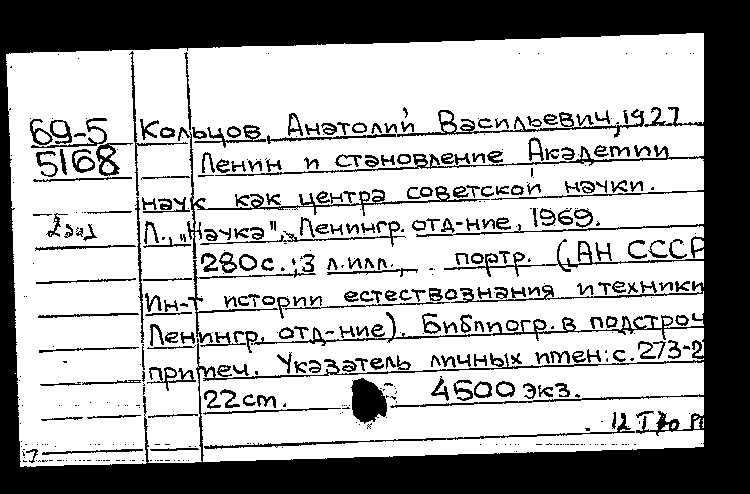 69-5 Кольцов, Анатолий Васильевич, 1927
5168 Ленин и становление Академии
наук как центра советской науки.
2 экз Л., "Наука", Ленингр. отд-ние, 1969.
280 с.; 3 л. илл., портр. (АН СССР
Ин-т истории естествознания и техники
Ленингр. отд-ние). Библиогр. в подстроч
примеч. Указатель личных имен: с. 273-2
22 см. 4500 экз.